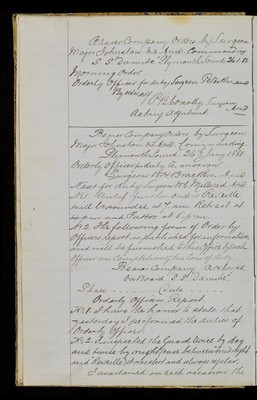 Bearer Company Orders by Surgeon
Major Johnston M.D. A.M.D. Commanding
S.S. Danube. Plymouth Sound 26.1.81
Morning Order
Orderly Officer for duty Surgeon
By order
Connolly Surgeon
Acting Adjutant. A.M.D.
Bearer Company Orders, by Surgeon
Major Johnston M.D. A.M.D. Commanding
Plymouth Sound 26th Jany 1881
Orderly Officer for duty to-morrow
Surgeon A.M.D.
Next for duty Surgeon A.M.D.
No 1. Until further orders Reveille
will be sounded at 7 a.m. Retreat at
p.m. and Tattoo at 8 p.m.
No 2. The following form of Orderly
Officers report is published for information,
and will be furnished to this Office by each
Officer on Completion of his tour of duty.
Bearer Company Army
On Board S.S. Danube.
Place Date
Orderly Officers Report
No 1. I have the honor to state that
yesterday I performed the duties of
Orderly Officer.
No 2. I inspected the Guard twice by day
and twice by night (once between midnight
and Reveille) at and always regular.
I ascertained on each occasion the